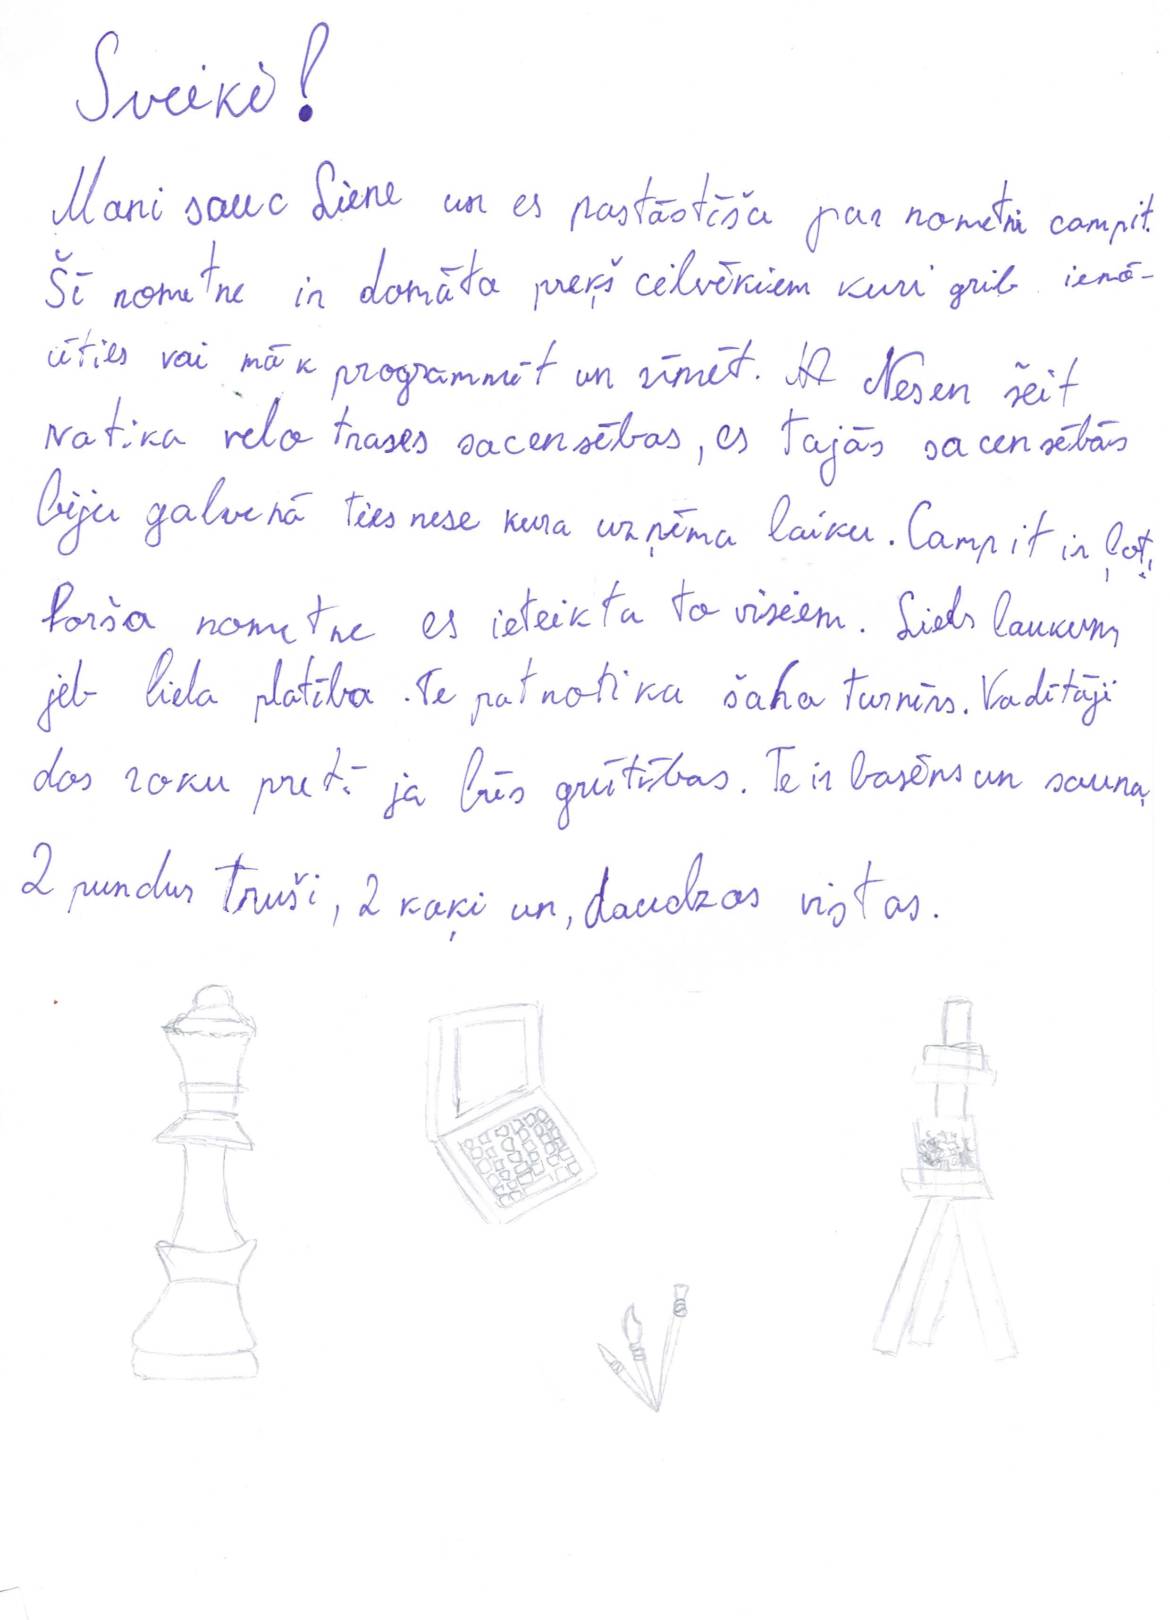 Sveiki!
Mani sauc Liene un es pastāstīšu par nometni campit.
Šī nometne ir domāta prekš cilvēkiem kuri grib iemā-
cīties vai māk programmēt un zīmēt. Nesen šeit
notika velo trases sacensības, es tajās sacensībās
biju galvenā tiesnese kura uzņēma laiku. Campit ir ļoti
forša nometne es ieteiktu to visiem. Liels laukums
jeb liela platība. Te pat notika šaha turnīrs. Vadītāji
dos roku pretī ja būs grūtības. Te ir basēns un sauna,
2 pundur truši, 2 kaķi un, daudzas vistas.